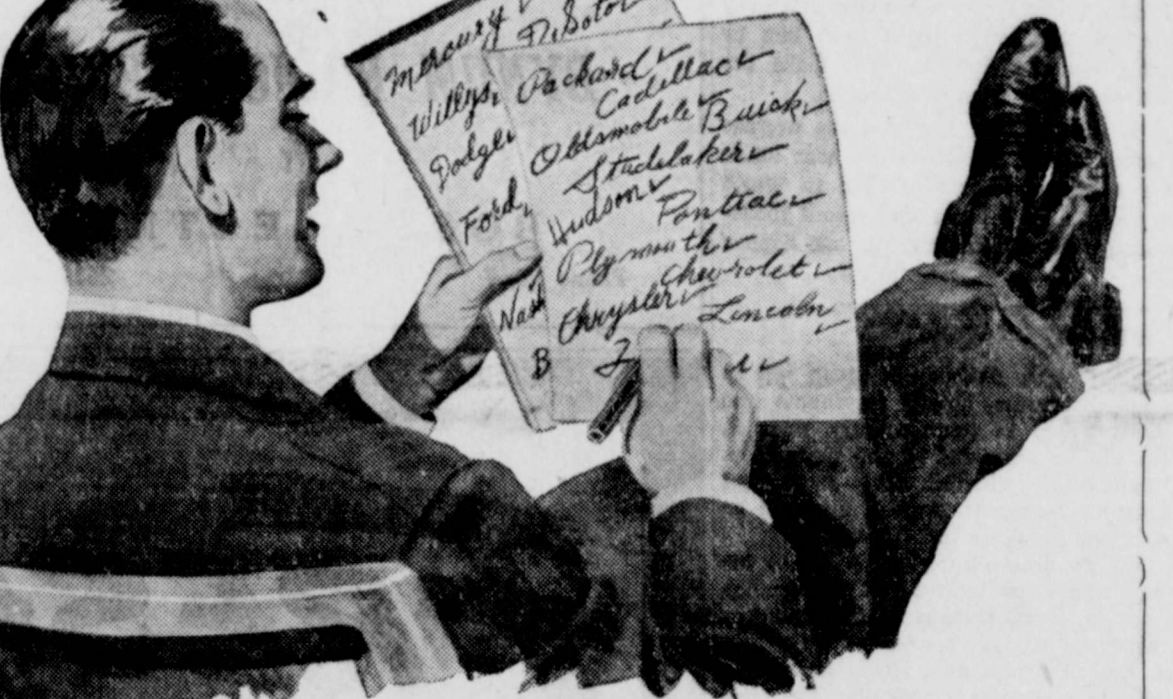 Mercury
DeSoto
Willys
Dodge
Ford
Nash
B
Packard
Cadillac
Oldsmobile
Buick
Studebaker
Hudson
Pontiac
Plymouth
Chevrolet
Chrysler
Lincoln